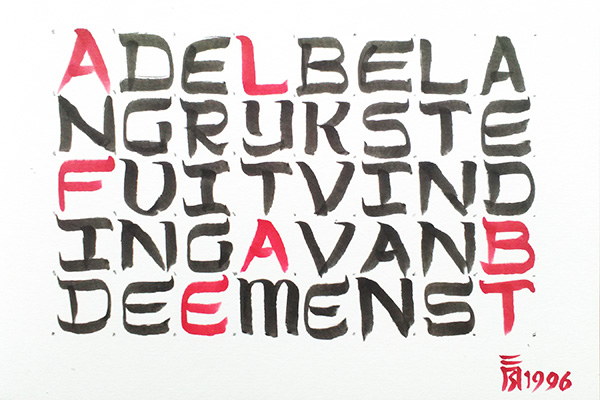 ADELBELA
NGRIJKSTE
FUITVIND
INGAVANB
DEEMENST
1996